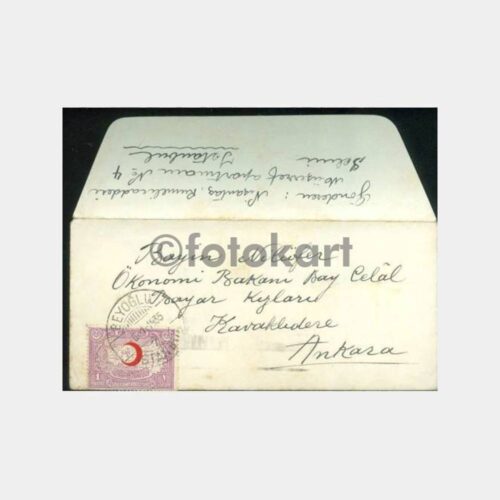 Gönderen: Nişantaş, Rumeli caddesi
Müşerref apartmanı No 4
Selmi
İstanbul
©fotokart
Bayan Nilüfer
Ökonomi Bakanı Bay Celâl
Bayar Kızları
Kavaklıdere
Ankara
BEYOĞLU
1